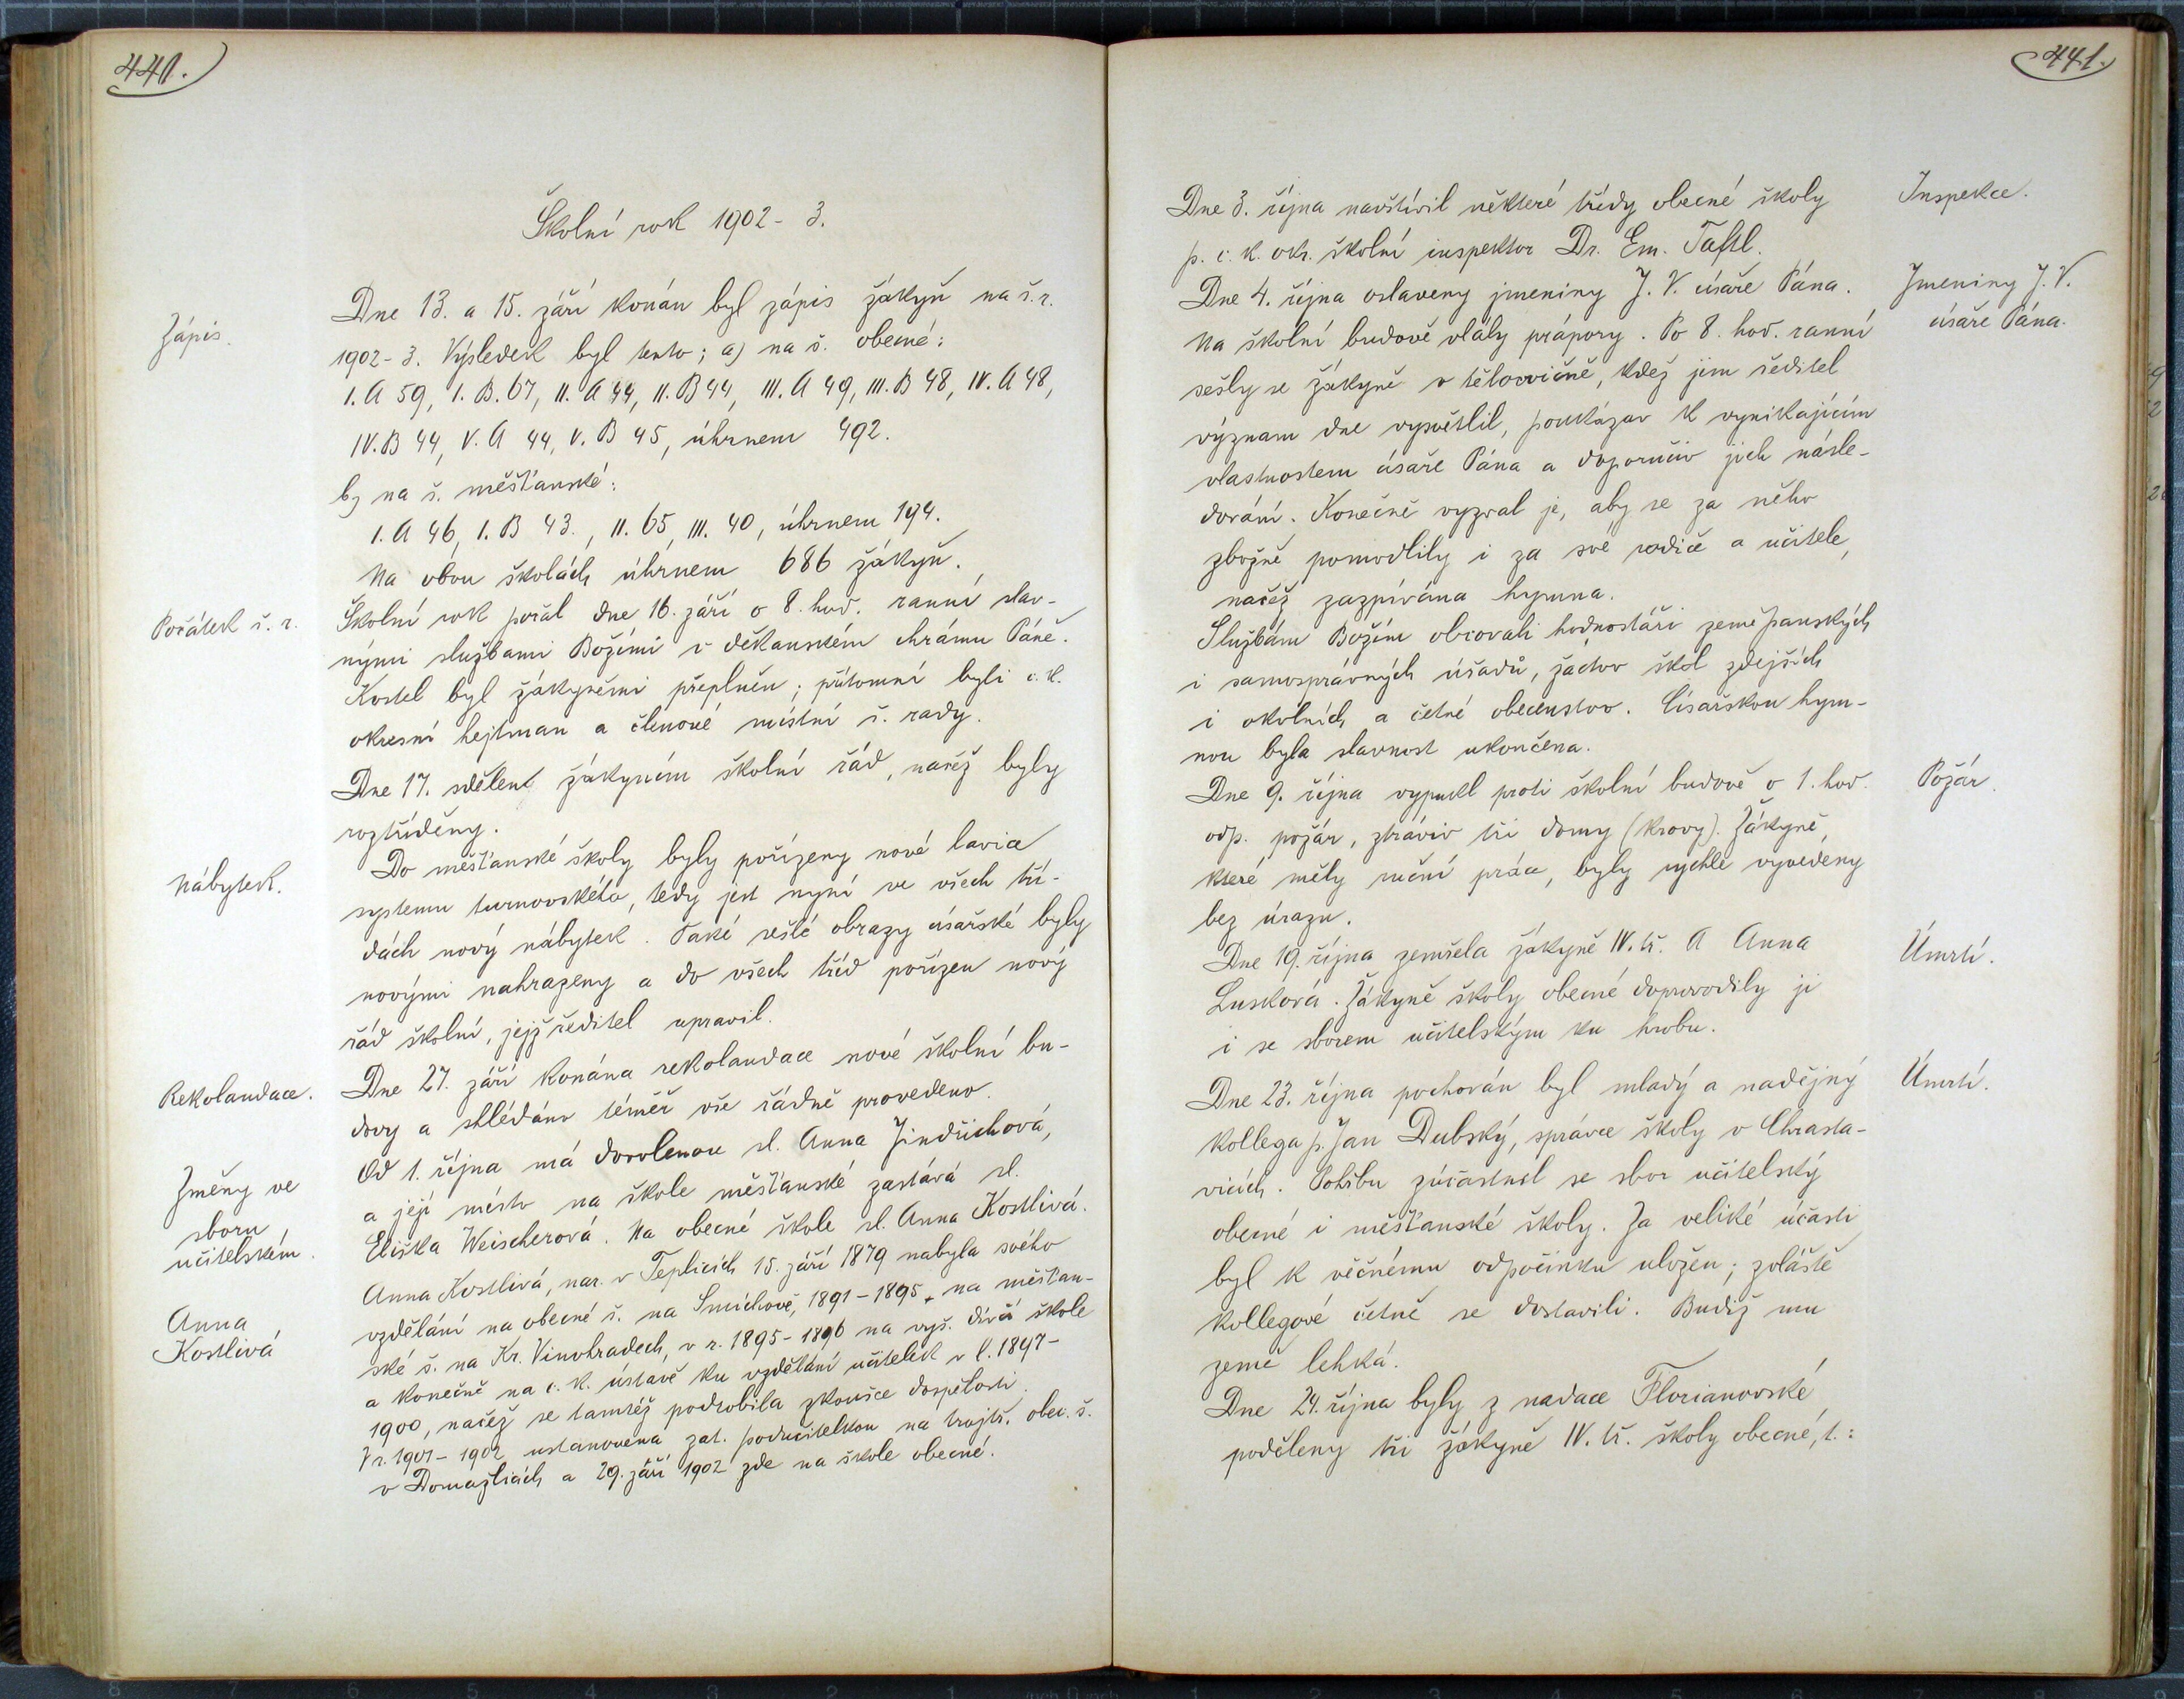 440.
Školní rok 1902 - 3.
Zápis.
Dne 13. a 15. září konán byl zápis žákyň na š. r.
1902 - 3. Výsledek byl tento; a) na š. obecné:
I. A 59, I. B. 67, II. A 44, II. B 44, III. A 49, III. B 48, IV. A 48,
IV. B 44, V. A 44, V. B 45, úhrnem 492.
b) na š. měšťanské:
I. A 46, I. B 43., II. 65, III. 40, úhrnem 194.
Na obou školách úhrnem 686 žákyň.
Počátek š. r.
Školní rok počal dne 16. září o 8. hod. ranní slav-
nými službami Božími v děkanském chrámu Páně.
Kostel byl žákyněmi přeplněn; přítomni byli c. k.
okresní hejtman a členové místní š. rady.
Dne 17. sdělent žákyním školní řád, načež byly
roztříděny.
Nábytek.
Do měšťanské školy byly pořízeny nové lavice
systemu turnovského, tedy jest nyní ve všech tří-
dách nový nábytek. Také sešlé obrazy císařské byly
novými nahrazeny a do všech tříd pořízen nový
řád školní, jejž ředitel upravil.
Rekolaudace.
Dne 27. září konána rekolaudace nové školní bu-
dovy a shledáno téměř vše řádně provedeno.
Změny ve
sboru
učitelském.
Od 1. října má dovolenou sl. Anna Jindřichová,
a její místo na škole měšťanské zastává sl.
Eliška Weischerová. Na obecné škole sl. Anna Kostlivá.
Anna
Kostlivá
Anna Kostlivá, nar. v Teplicích 15. září 1879 nabyla svého
vzdělání na obecné š. na Smíchově, 1891 - 1895 na měšťan-
ské š. na Kr. Vinohradech, v r. 1895 - 1896 na vyš. dívčí škole
a konečně na c. k. ústavě ku vzdělání učitelek v l. 1897 -
1900, načež se tamtéž podrobila zkoušce dospělosti.
V r. 1901 - 1902 ustanovena zat. podučitelkou na trojtř. obec. š.
v Domažlicích a 29. září 1902 zde na škole obecné.
441.
Dne 3. října navštívil některé třídy obecné školy
p. c. k. okr. školní inspektor Dr. Em. Taftl.
Inspekce.
Dne 4. října oslaveny jmeniny J. V. císaře Pána.
Jmeniny J. V.
císaře Pána.
Na školní budově vlály prápory. Po 8. hod. ranní
sešly se žákyně v tělocvičně, kdež jim ředitel
význam dne vysvětlil, poukázav k vynikajícím
vlastnostem císaře Pána a doporučiv jich násle-
dování. Konečně vyzval je, aby se za něho
zbožně pomodlily i za své rodiče a učitele,
načež zazpívána hymna.
Službám Božím obcovali hodnostáři zeměpanských
i samosprávných úřadů, žáctvo škol zdejších
i okolních a četné obecenstvo. Císařskou hym-
nou byla slavnost ukončena.
Dne 9. října vypukl proti školní budově o 1. hod.
Požár.
odp. požár, ztráviv tři domy (krovy). Žákyně,
které měly ruční práce, byly rychle vyvedeny
bez úrazu.
Dne 19. října zemřela žákyně IV. tř. A Anna
Úmrtí.
Lusková. Žákyně školy obecné doprovodily ji
i se sborem učitelským ku hrobu.
Dne 23. října pochován byl mladý a nadějný
Úmrtí.
kollega p. Jan Dubský, správce školy v Chrasta-
vicích. Pohřbu zúčastnil se sbor učitelský
obecné i měšťanské školy. Za veliké účasti
byl k věčnému odpočinku uložen; zvláště
kollegové četně se dostavili. Budiž mu
země lehká.
Dne 24. října byly z nadace Florianovské
poděleny tři žákyně IV. tř. školy obecné, t.: